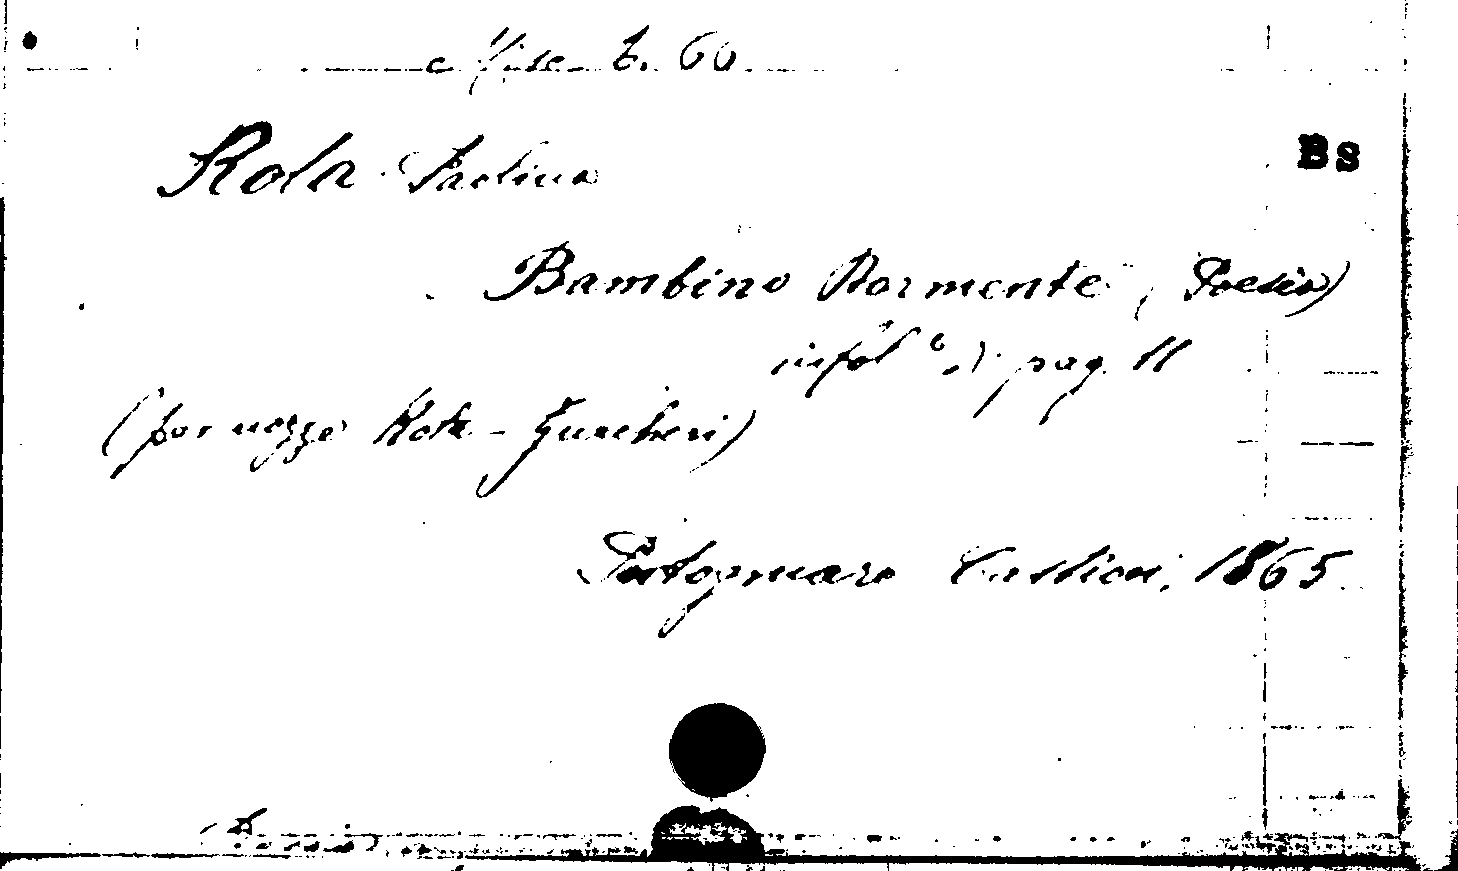 Misc B. 60
Bs
Rota Paolina
Bambino Dormente (Poesia)
in fol° di pag. 11
(per nozze Rota - Zuccheri)
Portogruaro Castion, 1865
(Poesia)